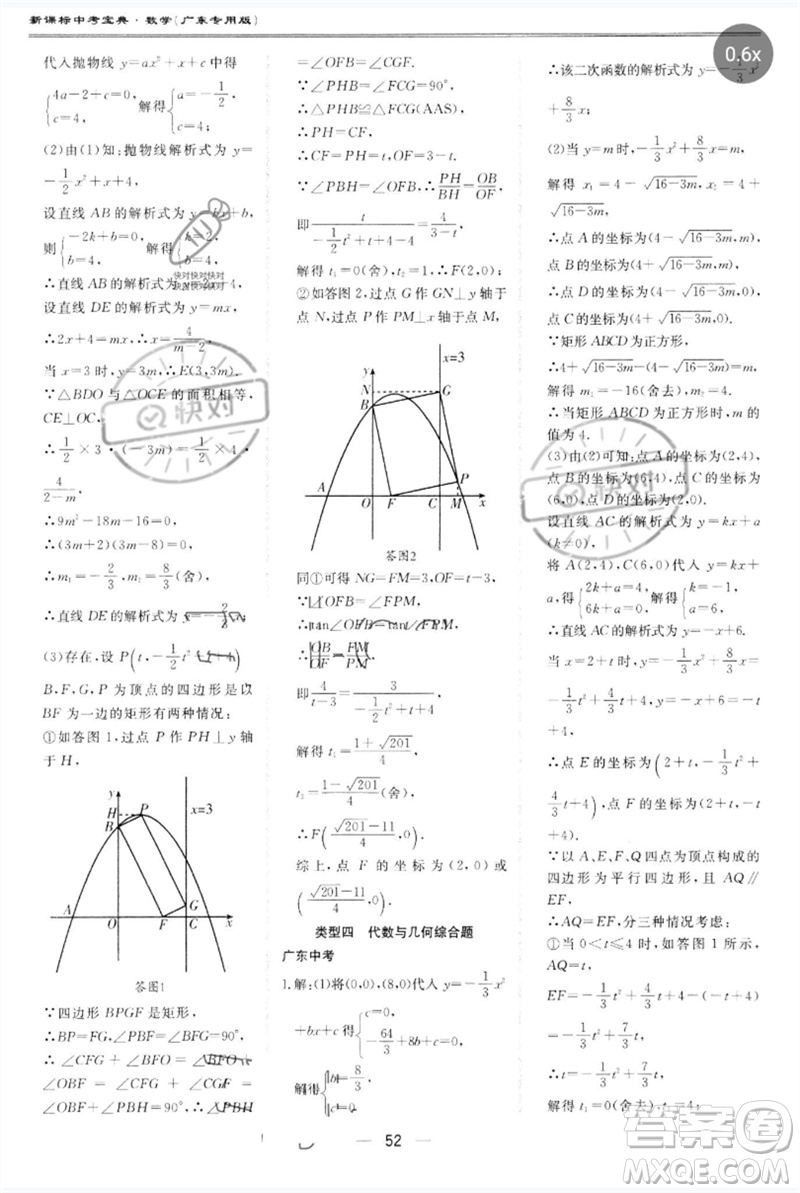 新课标中考宝典·数学(广东专用版)
0.6x
代入抛物线 y=ax²+x+c 中得
{4a-2+c=0, c=4, 解得{a=-1/2, c=4.
(2)由(1)知:抛物线解析式为 y=
-1/2x²+x+4,
设直线 AB 的解析式为 y=kx+b,
则{-2k+b=0, b=4,
设直线 DE 的解析式为 y=mx,
∴2x+4=mx,∴x=4/(m-2).
当 x=3 时,y=3m,∴E(3,3m),
∵△BDO 与△OCE 的面积相等,
CE⊥OC,
∴1/2×3·(-3m)=1/2×4·
4/(2-m),
∴9m²-18m-16=0,
∴(3m+2)(3m-8)=0,
∴m₁=-2/3,m₂=8/3(舍),
∴直线 DE 的解析式为 y=-2/3x.
(3)存在,设 P(t,-1/2t²+t+4),
B,F,G,P 为顶点的四边形是以
BF 为一边的矩形有两种情况:
①如答图 1,过点 P 作 PH⊥y 轴
于 H,
y
x=3
H
P
B
G
A
O
F
C
x
答图1
∵四边形 BPGF 是矩形,
∴BP=FG,∠PBF=∠BFG=90°,
∴∠CFG+∠BFO=∠BFO+
∠OBF=∠CFG+∠CGF=
∠OBF+∠PBH=90°,∴∠PBH
=∠OFB=∠CGF.
∵∠PHB=∠FCG=90°,
∴△PHB≌△FCG(AAS),
∴PH=CF,
∴CF=PH=t,OF=3-t.
∵∠PBH=∠OFB,∴PH/BH=OB/OF,
即t/(-1/2t²+t+4-4)=4/(3-t),
解得 t₁=0(舍),t₂=1,∴F(2,0);
②如答图 2,过点 G 作 GN⊥y 轴于
点 N,过点 P 作 PM⊥x 轴于点 M,
y
x=3
N
G
B
P
A
O
F
C
M
x
答图2
同①可得 NG=FM=3,OF=t-3,
∵∠OFB=∠FPM,
∴tan∠OFB=tan∠FPM,
∴OB/OF=FM/PM,
即4/(t-3)=3/(-1/2t²+t+4),
解得 t₁=(1+√201)/4,
t₂=(1-√201)/4(舍),
∴F((√201-11)/4,0).
综上,点 F 的坐标为(2,0)或
((√201-11)/4,0).
类型四 代数与几何综合题
广东中考
1.解:(1)将(0,0),(8,0)代入 y=-1/3x²
+bx+c 得{c=0, -64/3+8b+c=0,
解得{b=8/3, c=0.
∴该二次函数的解析式为 y=-1/3x²
+8/3x;
(2)当 y=m 时,-1/3x²+8/3x=m,
解得 x₁=4-√(16-3m),x₂=4+
√(16-3m),
∴点 A 的坐标为(4-√(16-3m),m),
点 B 的坐标为(4+√(16-3m),m),
∴点 D 的坐标为(4-√(16-3m),0),
点 C 的坐标为(4+√(16-3m),0).
∵矩形 ABCD 为正方形,
∴4+√(16-3m)-(4-√(16-3m))=m,
解得 m₁=-16(舍去),m₂=4.
∴当矩形 ABCD 为正方形时,m 的
值为 4.
(3)由(2)可知:点 A 的坐标为(2,4),
点 B 的坐标为(6,4),点 C 的坐标为
(6,0),点 D 的坐标为(2,0).
设直线 AC 的解析式为 y=kx+a
(k≠0),
将 A(2,4),C(6,0)代入 y=kx+
a,得{2k+a=4, 6k+a=0,解得{k=-1, a=6,
∴直线 AC 的解析式为 y=-x+6.
当 x=2+t 时,y=-1/3x²+8/3x=
-1/3t²+4/3t+4,y=-x+6=-t
+4,
∴点 E 的坐标为(2+t,-1/3t²+
4/3t+4),点 F 的坐标为(2+t,
-t+4).
∵以 A、E、F、Q 四点为顶点构成的
四边形为平行四边形,且 AQ∥
EF,
∴AQ=EF,分三种情况考虑:
①当 0<t≤4 时,如答图 1 所示,
AQ=t,
EF=-1/3t²+4/3t+4-(-t+4)
=-1/3t²+7/3t,
∴t=-1/3t²+7/3t,
解得 t₁=0(舍去),t₂=4;
52
快对
快对快对快对
答案圈
MXQE.COM